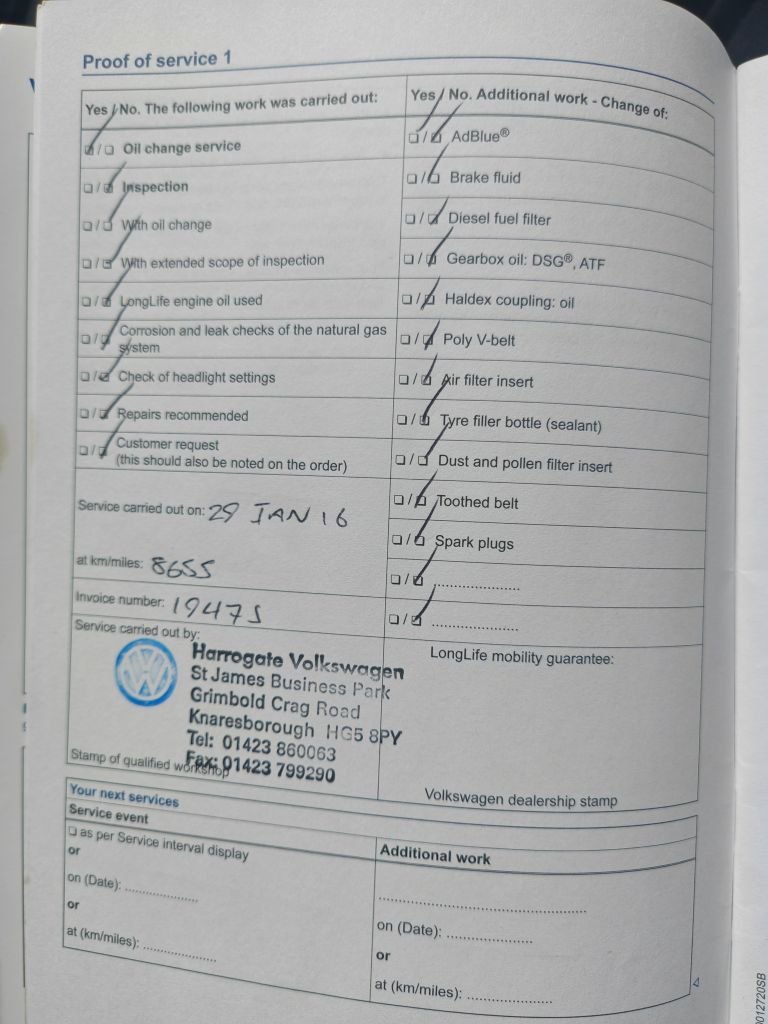 Proof of service 1
Yes / No. The following work was carried out:
☑ / ☐ Oil change service
☐ / ☑ Inspection
☐ / ☑ With oil change
☐ / ☑ With extended scope of inspection
☐ / ☑ LongLife engine oil used
☐ / ☑ Corrosion and leak checks of the natural gas
system
☐ / ☑ Check of headlight settings
☐ / ☑ Repairs recommended
☐ / ☑ Customer request
(this should also be noted on the order)
Service carried out on: 29 JAN 16
at km/miles: 8655
Invoice number: 19475
Service carried out by:
Harrogate Volkswagen
St James Business Park
Grimbold Crag Road
Knaresborough HG5 8PY
Tel: 01423 860063
Fax: 01423 799290
Stamp of qualified workshop
Yes / No. Additional work - Change of:
☐ / ☑ AdBlue®
☐ / ☑ Brake fluid
☐ / ☑ Diesel fuel filter
☐ / ☑ Gearbox oil: DSG®, ATF
☐ / ☑ Haldex coupling: oil
☐ / ☑ Poly V-belt
☐ / ☑ Air filter insert
☐ / ☑ Tyre filler bottle (sealant)
☐ / ☑ Dust and pollen filter insert
☐ / ☑ Toothed belt
☐ / ☑ Spark plugs
☐ / ☑ ......................
☐ / ☑ ......................
LongLife mobility guarantee:
Volkswagen dealership stamp
Your next services
Service event
☐ as per Service interval display
or
on (Date): ..................
or
at (km/miles): ..................
Additional work
..................................................
on (Date): .....................
or
at (km/miles): .....................
012720SB